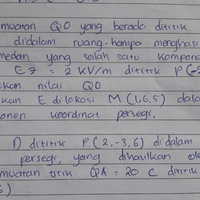 muatan Q0 yang berada dititik
didalam ruang hampa menghasi
medan yang salah satu kompone
Ez = 2 kV/m dititik P(-5
kan nilai Q0
kan E dilokasi M (1,6,5) dala
onen koordinat persegi.
D dititik P(2,-3,6) didalam
persegi, yang dihasilkan ol
muatan titik QA = 20 C dititik
6)